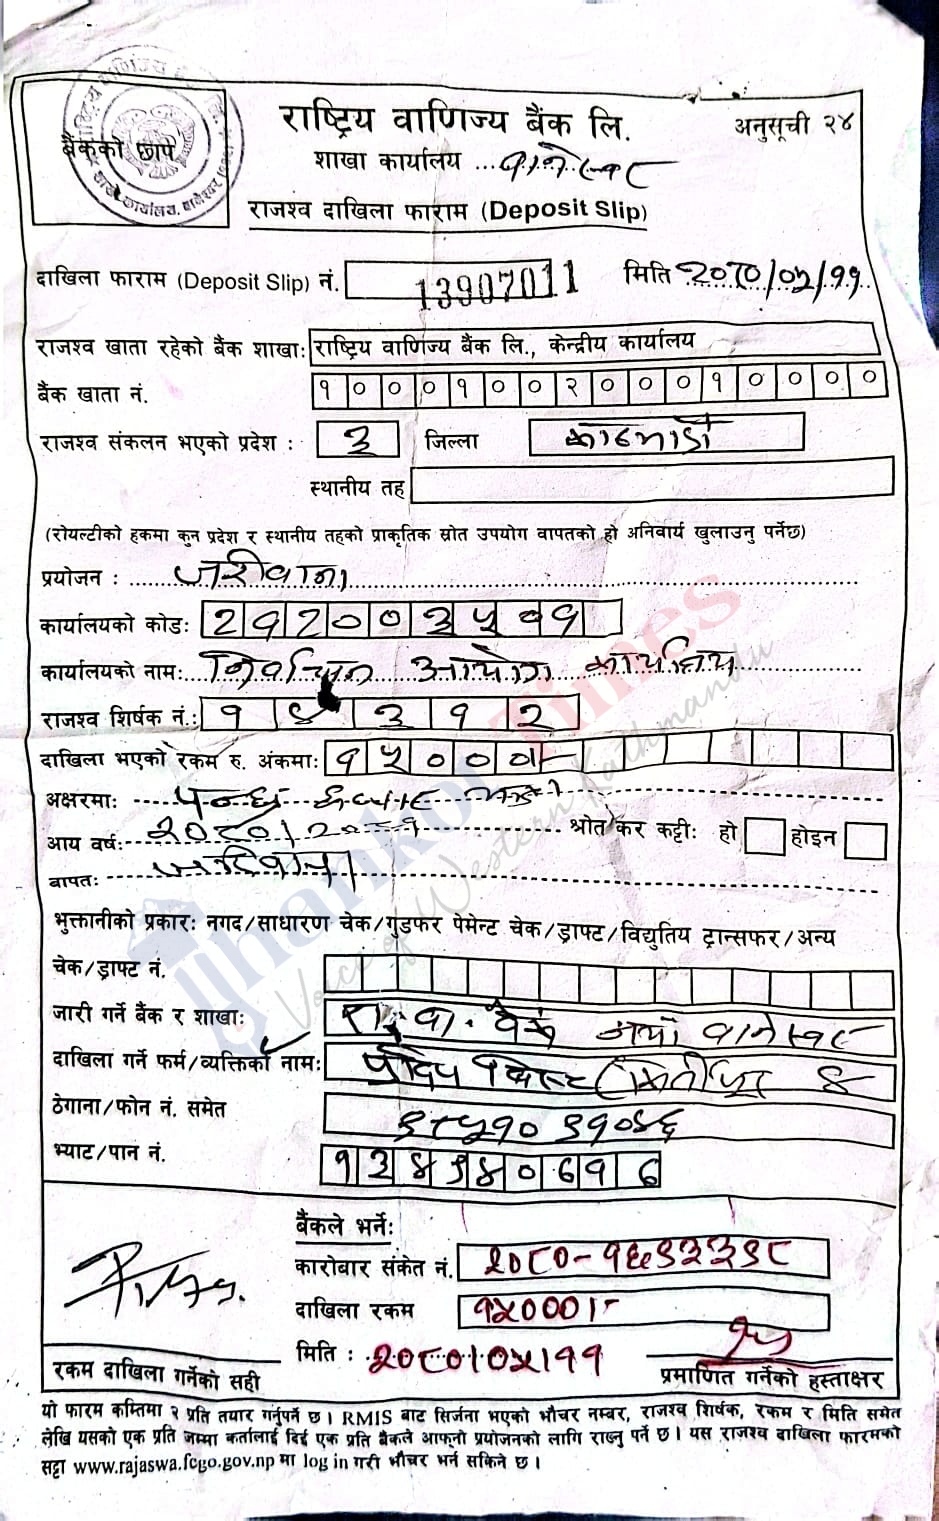 राष्ट्रिय वाणिज्य बैंक लि.
अनुसूची २४
बैंकको छाप
शाखा कार्यालय ...वानेश्वर
राजश्व दाखिला फाराम (Deposit Slip)
दाखिला फाराम (Deposit Slip) नं. 13907011 मिति २०८०/०५/११
राजश्व खाता रहेको बैंक शाखाः राष्ट्रिय वाणिज्य बैंक लि., केन्द्रीय कार्यालय
बैंक खाता नं. १०००१००२०००१००००
राजश्व संकलन भएको प्रदेश : ३ जिल्ला काठमाडौं
स्थानीय तह
(रोयल्टीको हकमा कुन प्रदेश र स्थानीय तहको प्राकृतिक स्रोत उपयोग वापतको हो अनिवार्य खुलाउनु पर्नेछ)
प्रयोजन : जरीवाना
कार्यालयको कोडः २१२००३५०१
कार्यालयको नामः निर्वाचन आयोग कार्यालय
राजश्व शिर्षक नं.: १४३१२
दाखिला भएको रकम रु. अंकमाः १५०००।-
अक्षरमाः पन्ध्र हजार मात्र
आय वर्षः २०८०। श्रोत कर कट्टीः हो होइन
बापतः जरिवाना
भुक्तानीको प्रकारः नगद/साधारण चेक/गुडफर पेमेन्ट चेक/ड्राफ्ट/विद्युतिय ट्रान्सफर/अन्य
चेक/ड्राफ्ट नं.
जारी गर्ने बैंक र शाखाः रा. वा. बैंक नयाँ वानेश्वर
दाखिला गर्ने फर्म/व्यक्तिको नामः प्रदिप विष्ट (कीर्तिपुर ४
ठेगाना/फोन नं. समेत ९८५१०९१०४६
भ्याट/पान नं.
बैंकले भर्नेः
कारोबार संकेत नं. २०८०-१६९३३९८
दाखिला रकम १५०००।-
मिति : २०८०।०५।११
रकम दाखिला गर्नेको सही
प्रमाणित गर्नेको हस्ताक्षर
यो फारम कम्तिमा २ प्रति तयार गर्नुपर्ने छ । RMIS बाट सिर्जना भएको भौचर नम्बर, राजश्व शिर्षक, रकम र मिति समेत
लेखि यसको एक प्रति जम्मा कर्तालाई दिई एक प्रति बैंकले आफ्नो प्रयोजनको लागि राख्नु पर्ने छ । यस राजश्व दाखिला फारमको
सट्टा www.rajaswa.fcgo.gov.np मा log in गरी भौचर भर्न सकिने छ ।
Thankot Times
Voice of Western Kathmandu